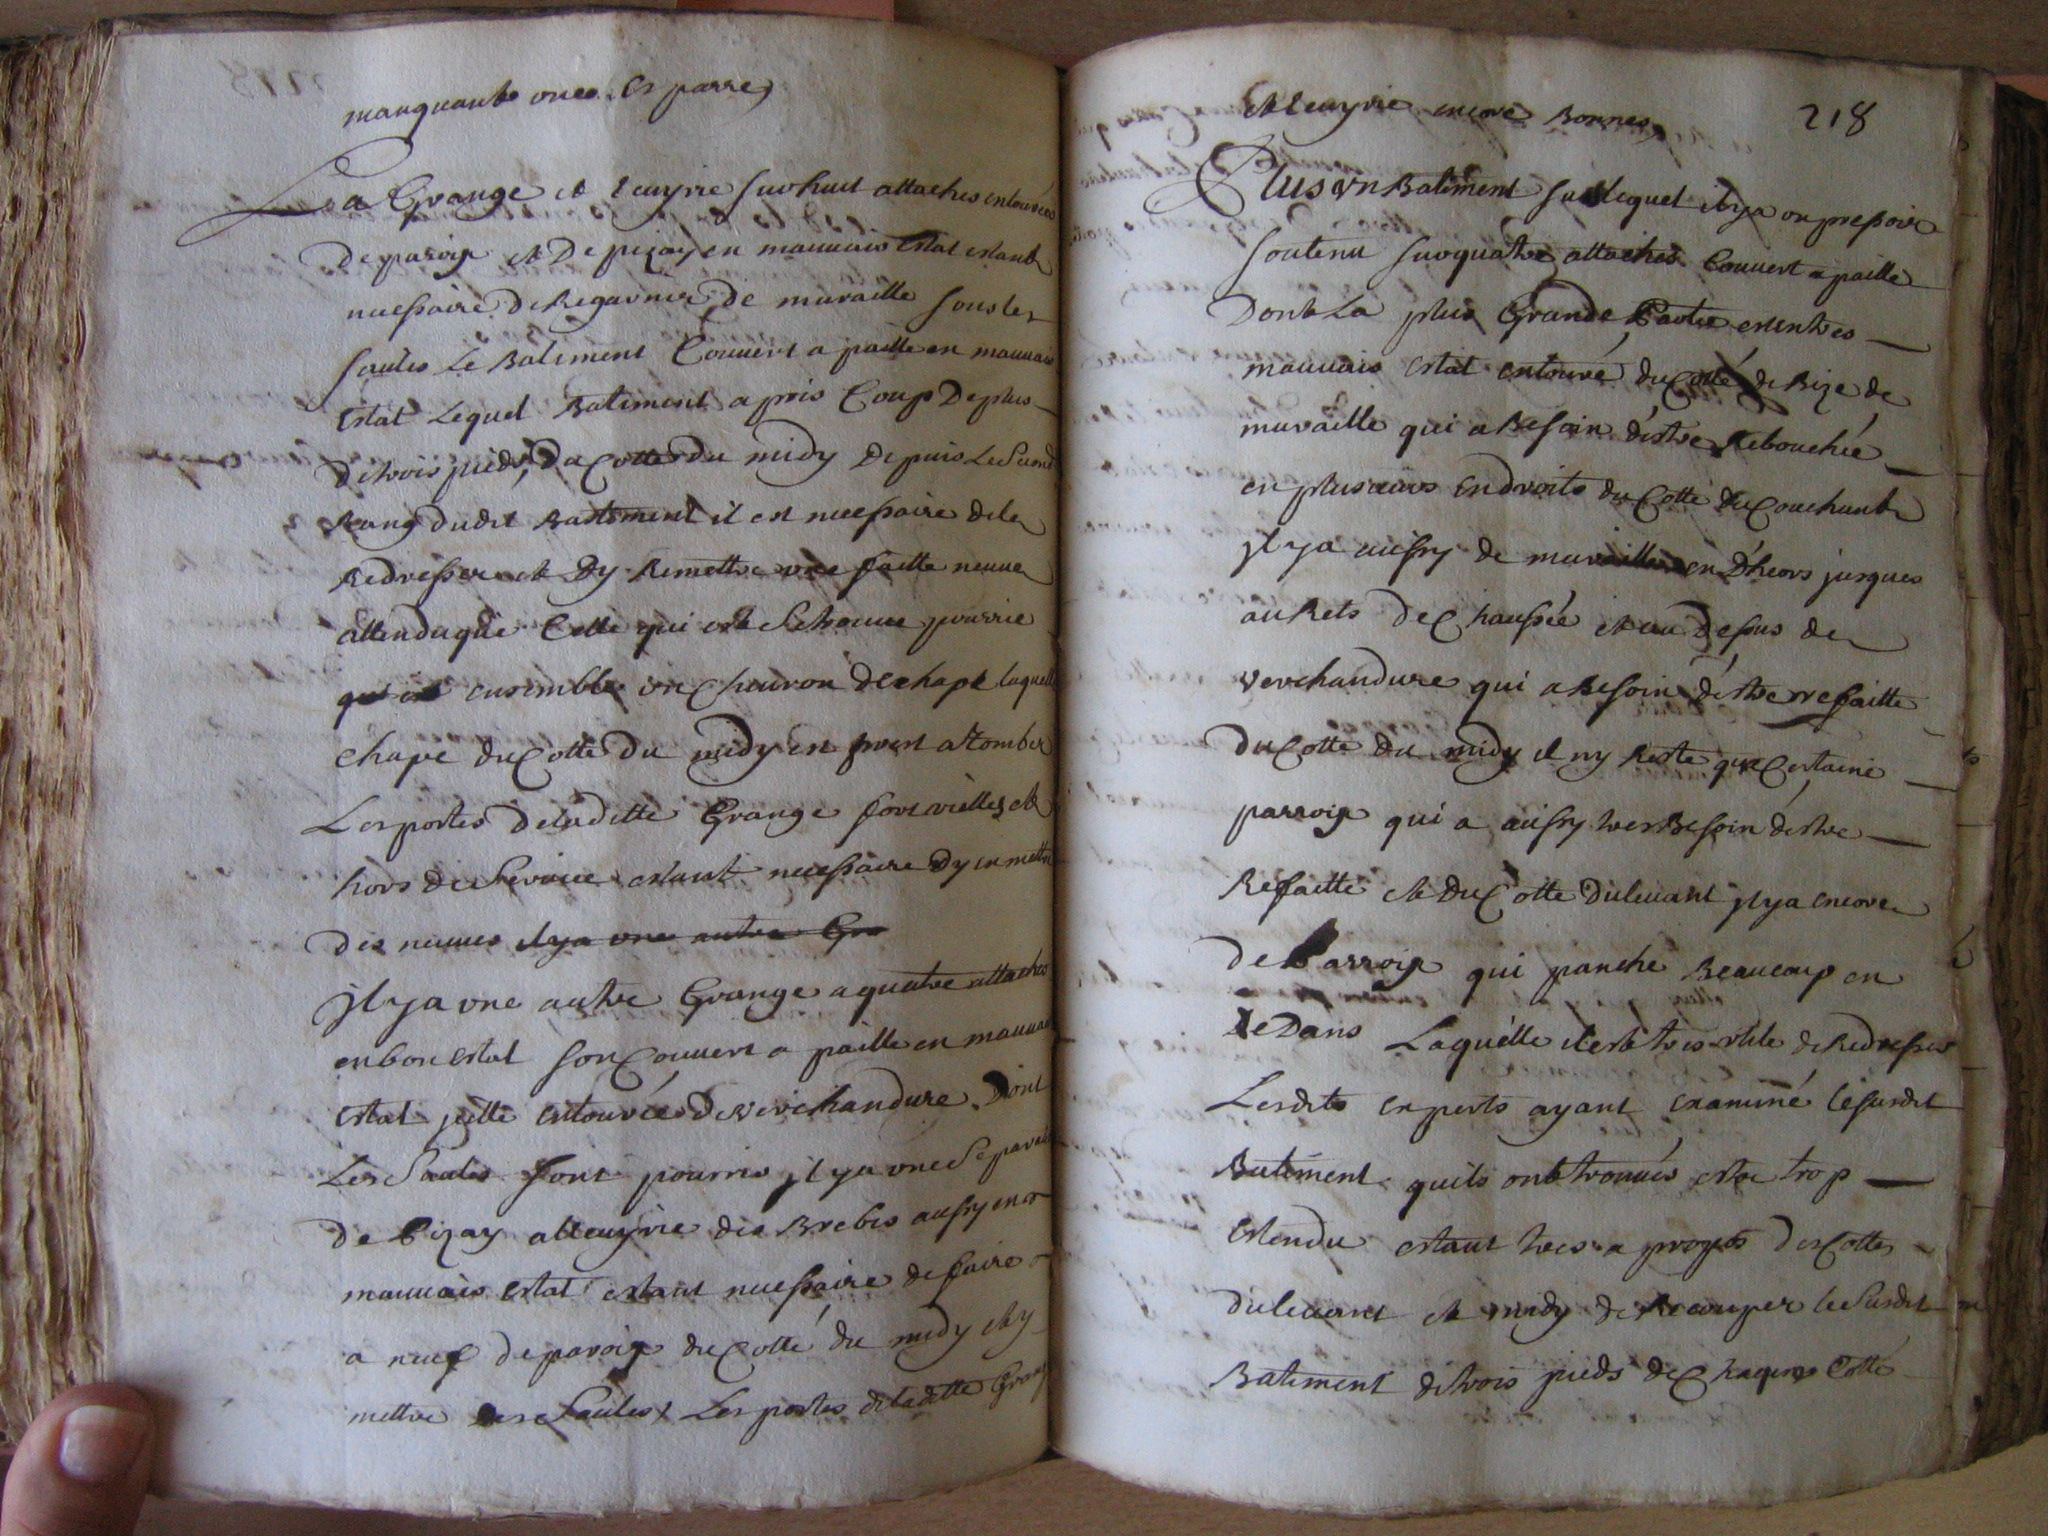 manquant une esparre
La Grange et Ecuyrie sur huit attaches entourées
De paroix et De pizay en mauuais Estat estant
necessaire De Regarnir de muraille sous les
saules Le Batiment Couuert a paille en mauuais
Estat Lequel Batiment a pris Coup De plus
De trois pieds, Du Cotte Du midy Depuis Le Second
Rang dudit Bastiment il est necessaire de le
Redresser et Dy Remettre une faitte neuue
attenduque Celle qui est Se trouue pourrie
ensemble un Cheuron de chape laquelle
chape du Cotte Du midy est prest a Tomber
Les portes De laditte Grange sont vielles et
hors de Seruice estant necessaire Dy en mettre
des neuues il y a une autre Gra
Jl y a une autre Grange a quatre attaches
en bon Estat son Couuert a paille en mauuais
Estat jcelle entourée De Verchandure Dont
Les Saules Sont pourris jl y a une Separation
De Pizay a lecuyrie des Brebis aussy en
mauuais Estat estant necessaire de faire
a neuf De paroix du Cotté du midy et y
mettre des Saules, Les portes de laditte Grange
218
et Ecuyrie encore Bonnes
Plus vn Batiment sur lequel il y a un pressoir
soutenu sur quatre attaches Couuert a paille
Dont La plus Grande Partie est en tres
mauuais Estat entouré du Cotté de Bize de
muraille qui a Besoin destre Rebouchée
en plusieurs endroits du Cotte du Couchant
jl y a aussy de muraille en Dheors jusques
au Rets De Chaussée et au Dessus de
verchandure qui a Besoin destre reffaitte
Du Cotte du midy il ny Reste que Certaine
parroix qui a aussy tres Besoin destre
Refaitte et Du Cotte Du leuant jl y a encore
De Parroix qui panche Beaucoup en
DeDans Laquelle il est tres vtile de Redresser
Lesdits experts ayant examiné le susdit
Batiment quils ont trouués estre trop
Estendu estant tres a propos Des Cottes
du leuant et midy de Recouper le Susdit
Batiment de trois pieds De Chaques Cotté